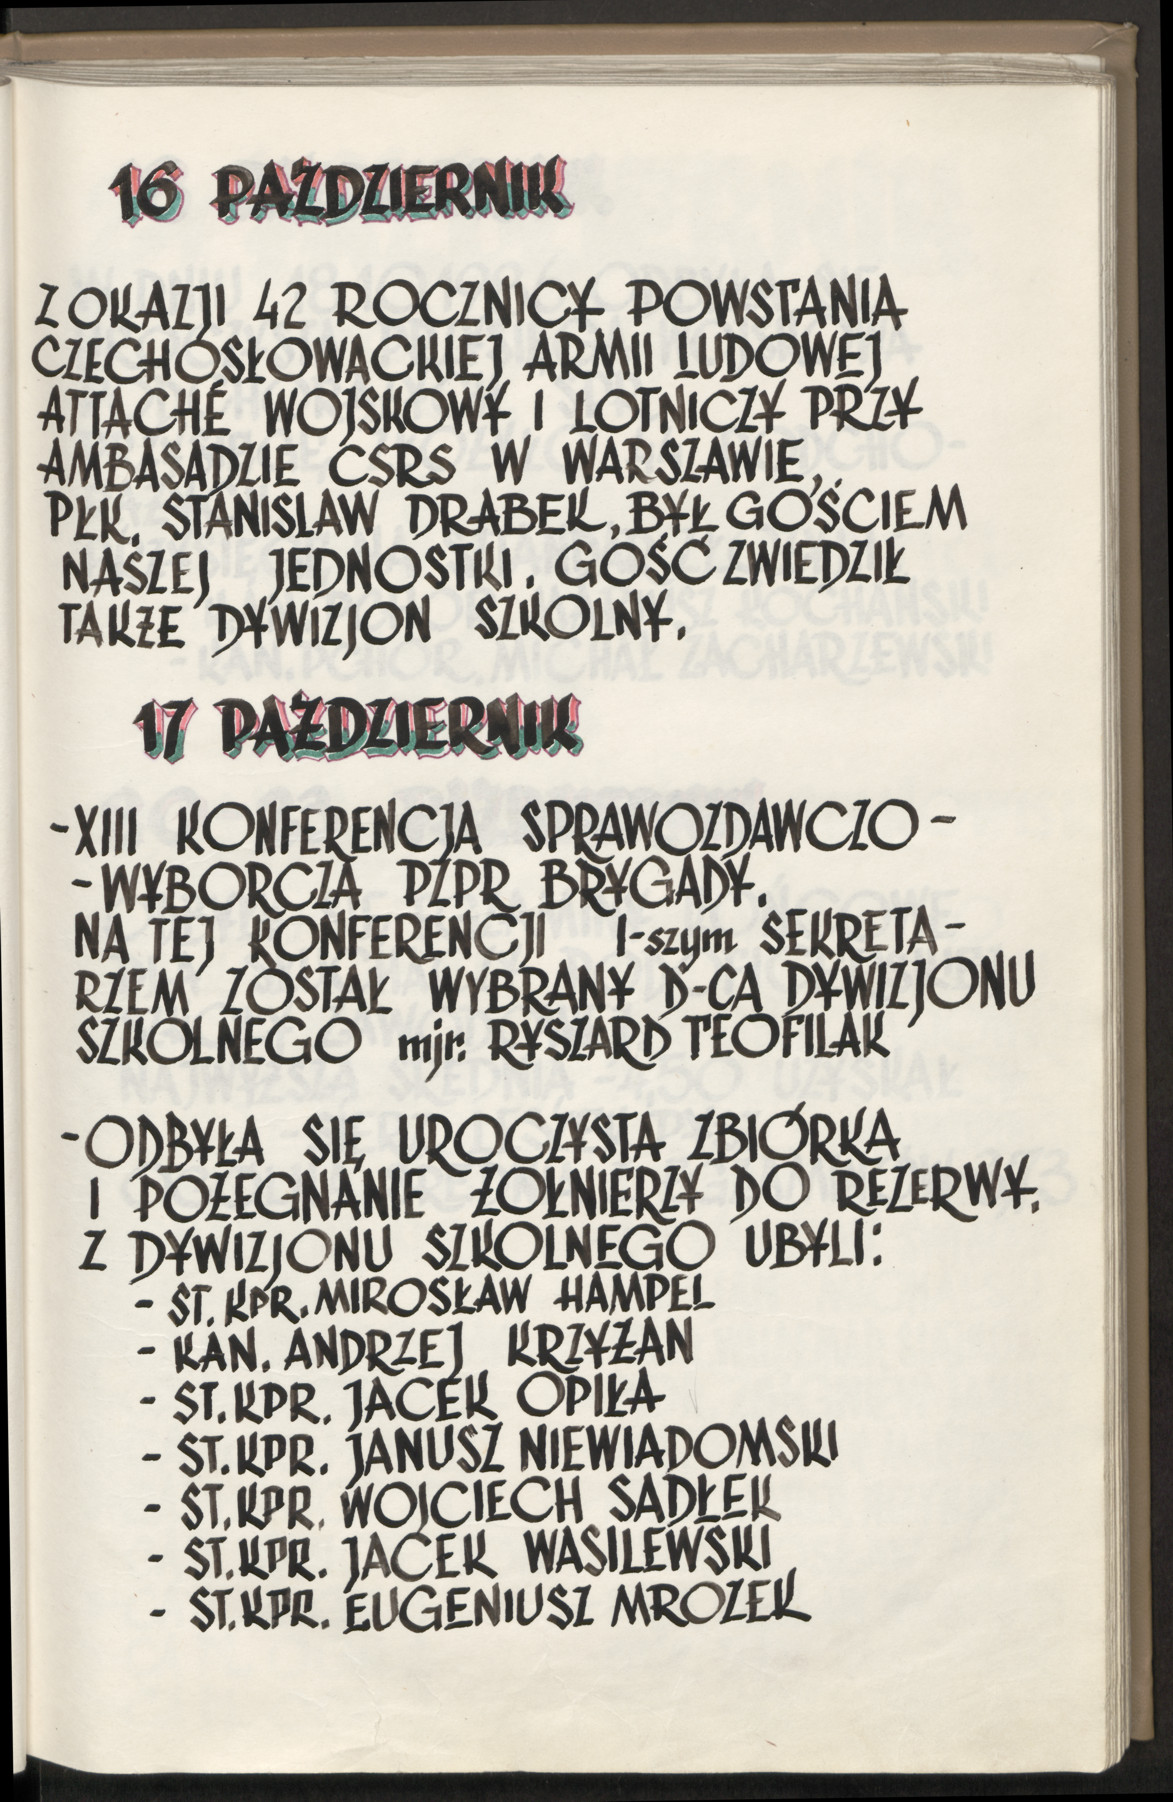 16 PAŹDZIERNIK
Z OKAZJI 42 ROCZNICY POWSTANIA
CZECHOSŁOWACKIEJ ARMII LUDOWEJ
ATTACHÉ WOJSKOWY I LOTNICZY PRZY
AMBASADZIE CSRS W WARSZAWIE,
PŁK. STANISLAW DRABEK, BYŁ GOŚCIEM
NASZEJ JEDNOSTKI. GOŚĆ ZWIEDZIŁ
TAKŻE DYWIZJON SZKOLNY.
17 PAŹDZIERNIK
-XIII KONFERENCJA SPRAWOZDAWCZO-
-WYBORCZA PZPR BRYGADY.
NA TEJ KONFERENCJI I-szym SEKRETA-
RZEM ZOSTAŁ WYBRANY D-CA DYWIZJONU
SZKOLNEGO mjr. RYSZARD TEOFILAK
-ODBYŁA SIĘ UROCZYSTA ZBIÓRKA
I POŻEGNANIE ŻOŁNIERZY DO REZERWY.
Z DYWIZJONU SZKOLNEGO UBYLI:
- ST. KPR. MIROSŁAW HAMPEL
- KAN. ANDRZEJ KRZYŻAN
- ST. KPR. JACEK OPIŁA
- ST. KPR. JANUSZ NIEWIADOMSKI
- ST. KPR. WOJCIECH SADŁEK
- ST. KPR. JACEK WASILEWSKI
- ST. KPR. EUGENIUSZ MROZEK